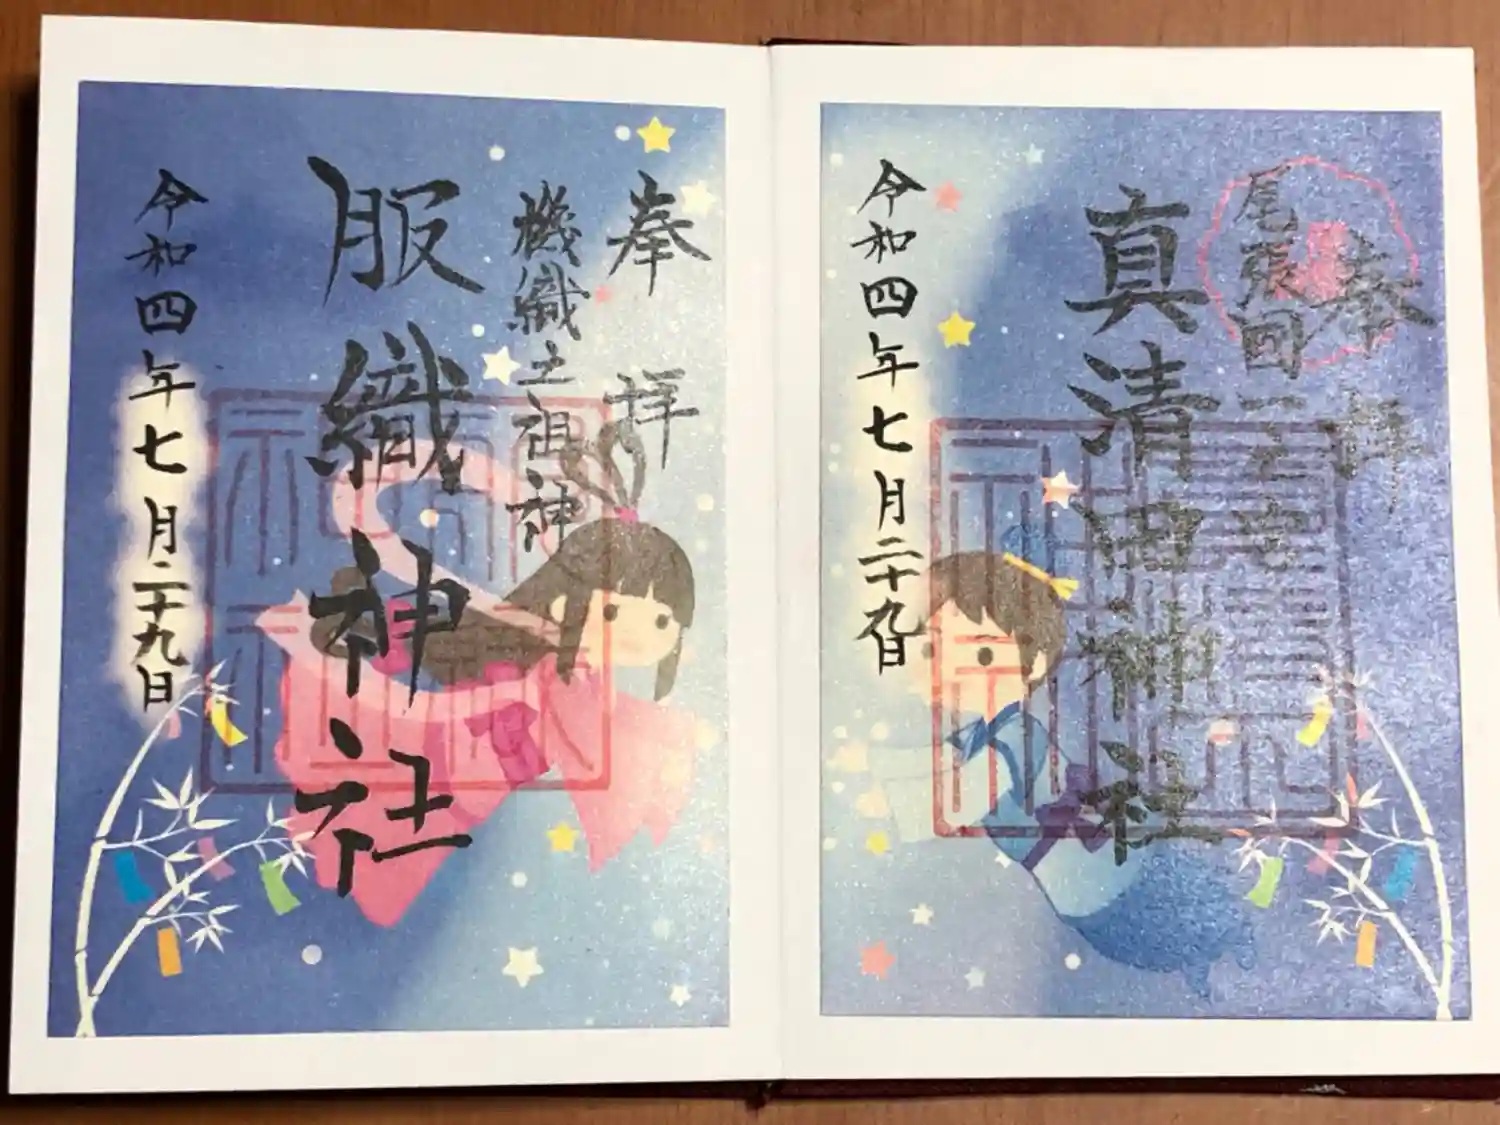 奉拝
尾張國一之宮
真清田神社
令和四年七月二十九日
奉拝
機織之祖神
服織神社
令和四年七月二十九日